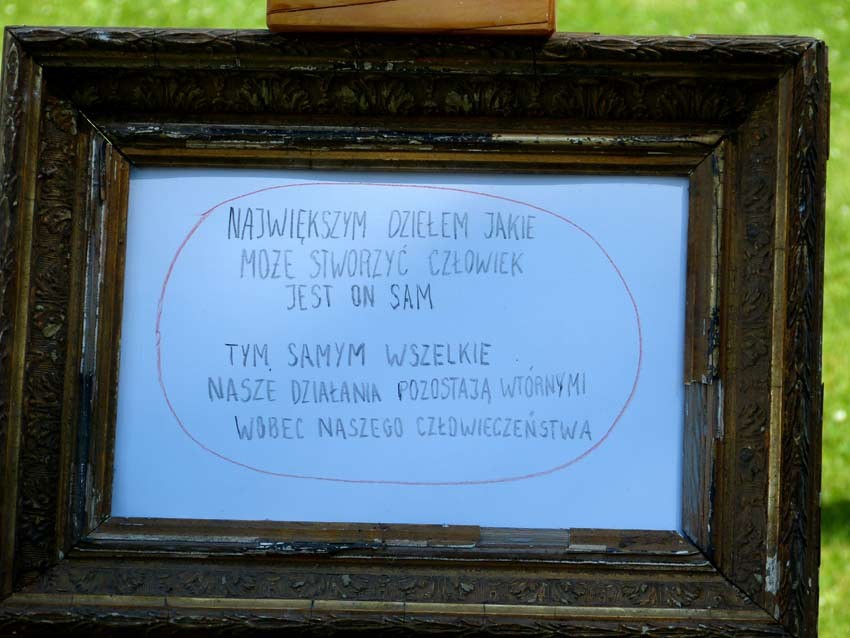 NAJWIĘKSZYM DZIEŁEM JAKIE
MOŻE STWORZYĆ CZŁOWIEK
JEST ON SAM
TYM SAMYM WSZELKIE
NASZE DZIAŁANIA POZOSTAJĄ WTÓRNYMI
WOBEC NASZEGO CZŁOWIECZEŃSTWA